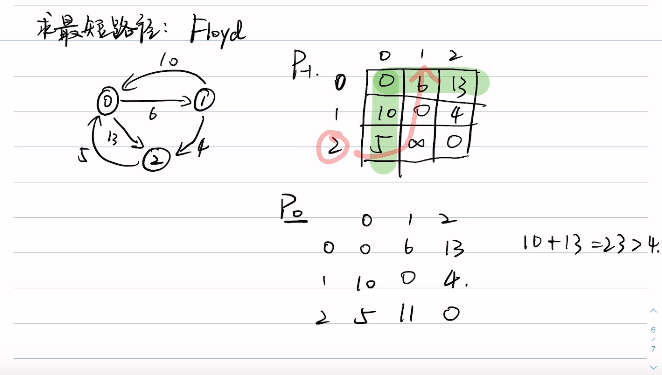 求最短路径: Floyd
10
0 1
6
5 13 2 4
P-1. 0 1 2
0 0 6 13
1 10 0 4
2 5 ∞ 0
P0 0 1 2
0 0 6 13
1 10 0 4.
2 5 11 0
10+13=23>4.
6
7